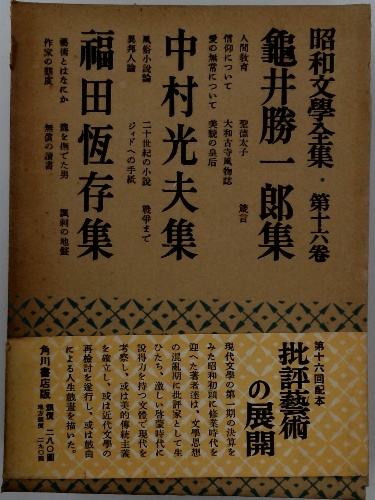 昭和文學全集・第十六卷
龜井勝一郎集
人間教育 聖德太子 箴言
信仰について 大和古寺風物誌
愛の無常について 美貌の皇后
中村光夫集
風俗小說論 二十世紀の小說 戰爭まで
異邦人論 ジィドへの手紙
福田恆存集
藝術とはなにか 龍を撫でた男 諷刺の地盤
作家の態度 無償の讀書
第十六回配本
批評藝術
の展開
現代文學の第一期の決算を
みた昭和初頭に修業時代を
迎へた著者達は、文學思想
の混亂期に批評家として生
ひたち、激しい啓蒙時代に
說得力を持つ文體で現代を
考察し、或は美的傳統主義
を確立し、或は近代文學の
再檢討を遂行し、或は戲曲
による人生戲畫を描いた。
角川書店版 頒價 二八〇圓
地方頒價 二九〇圓